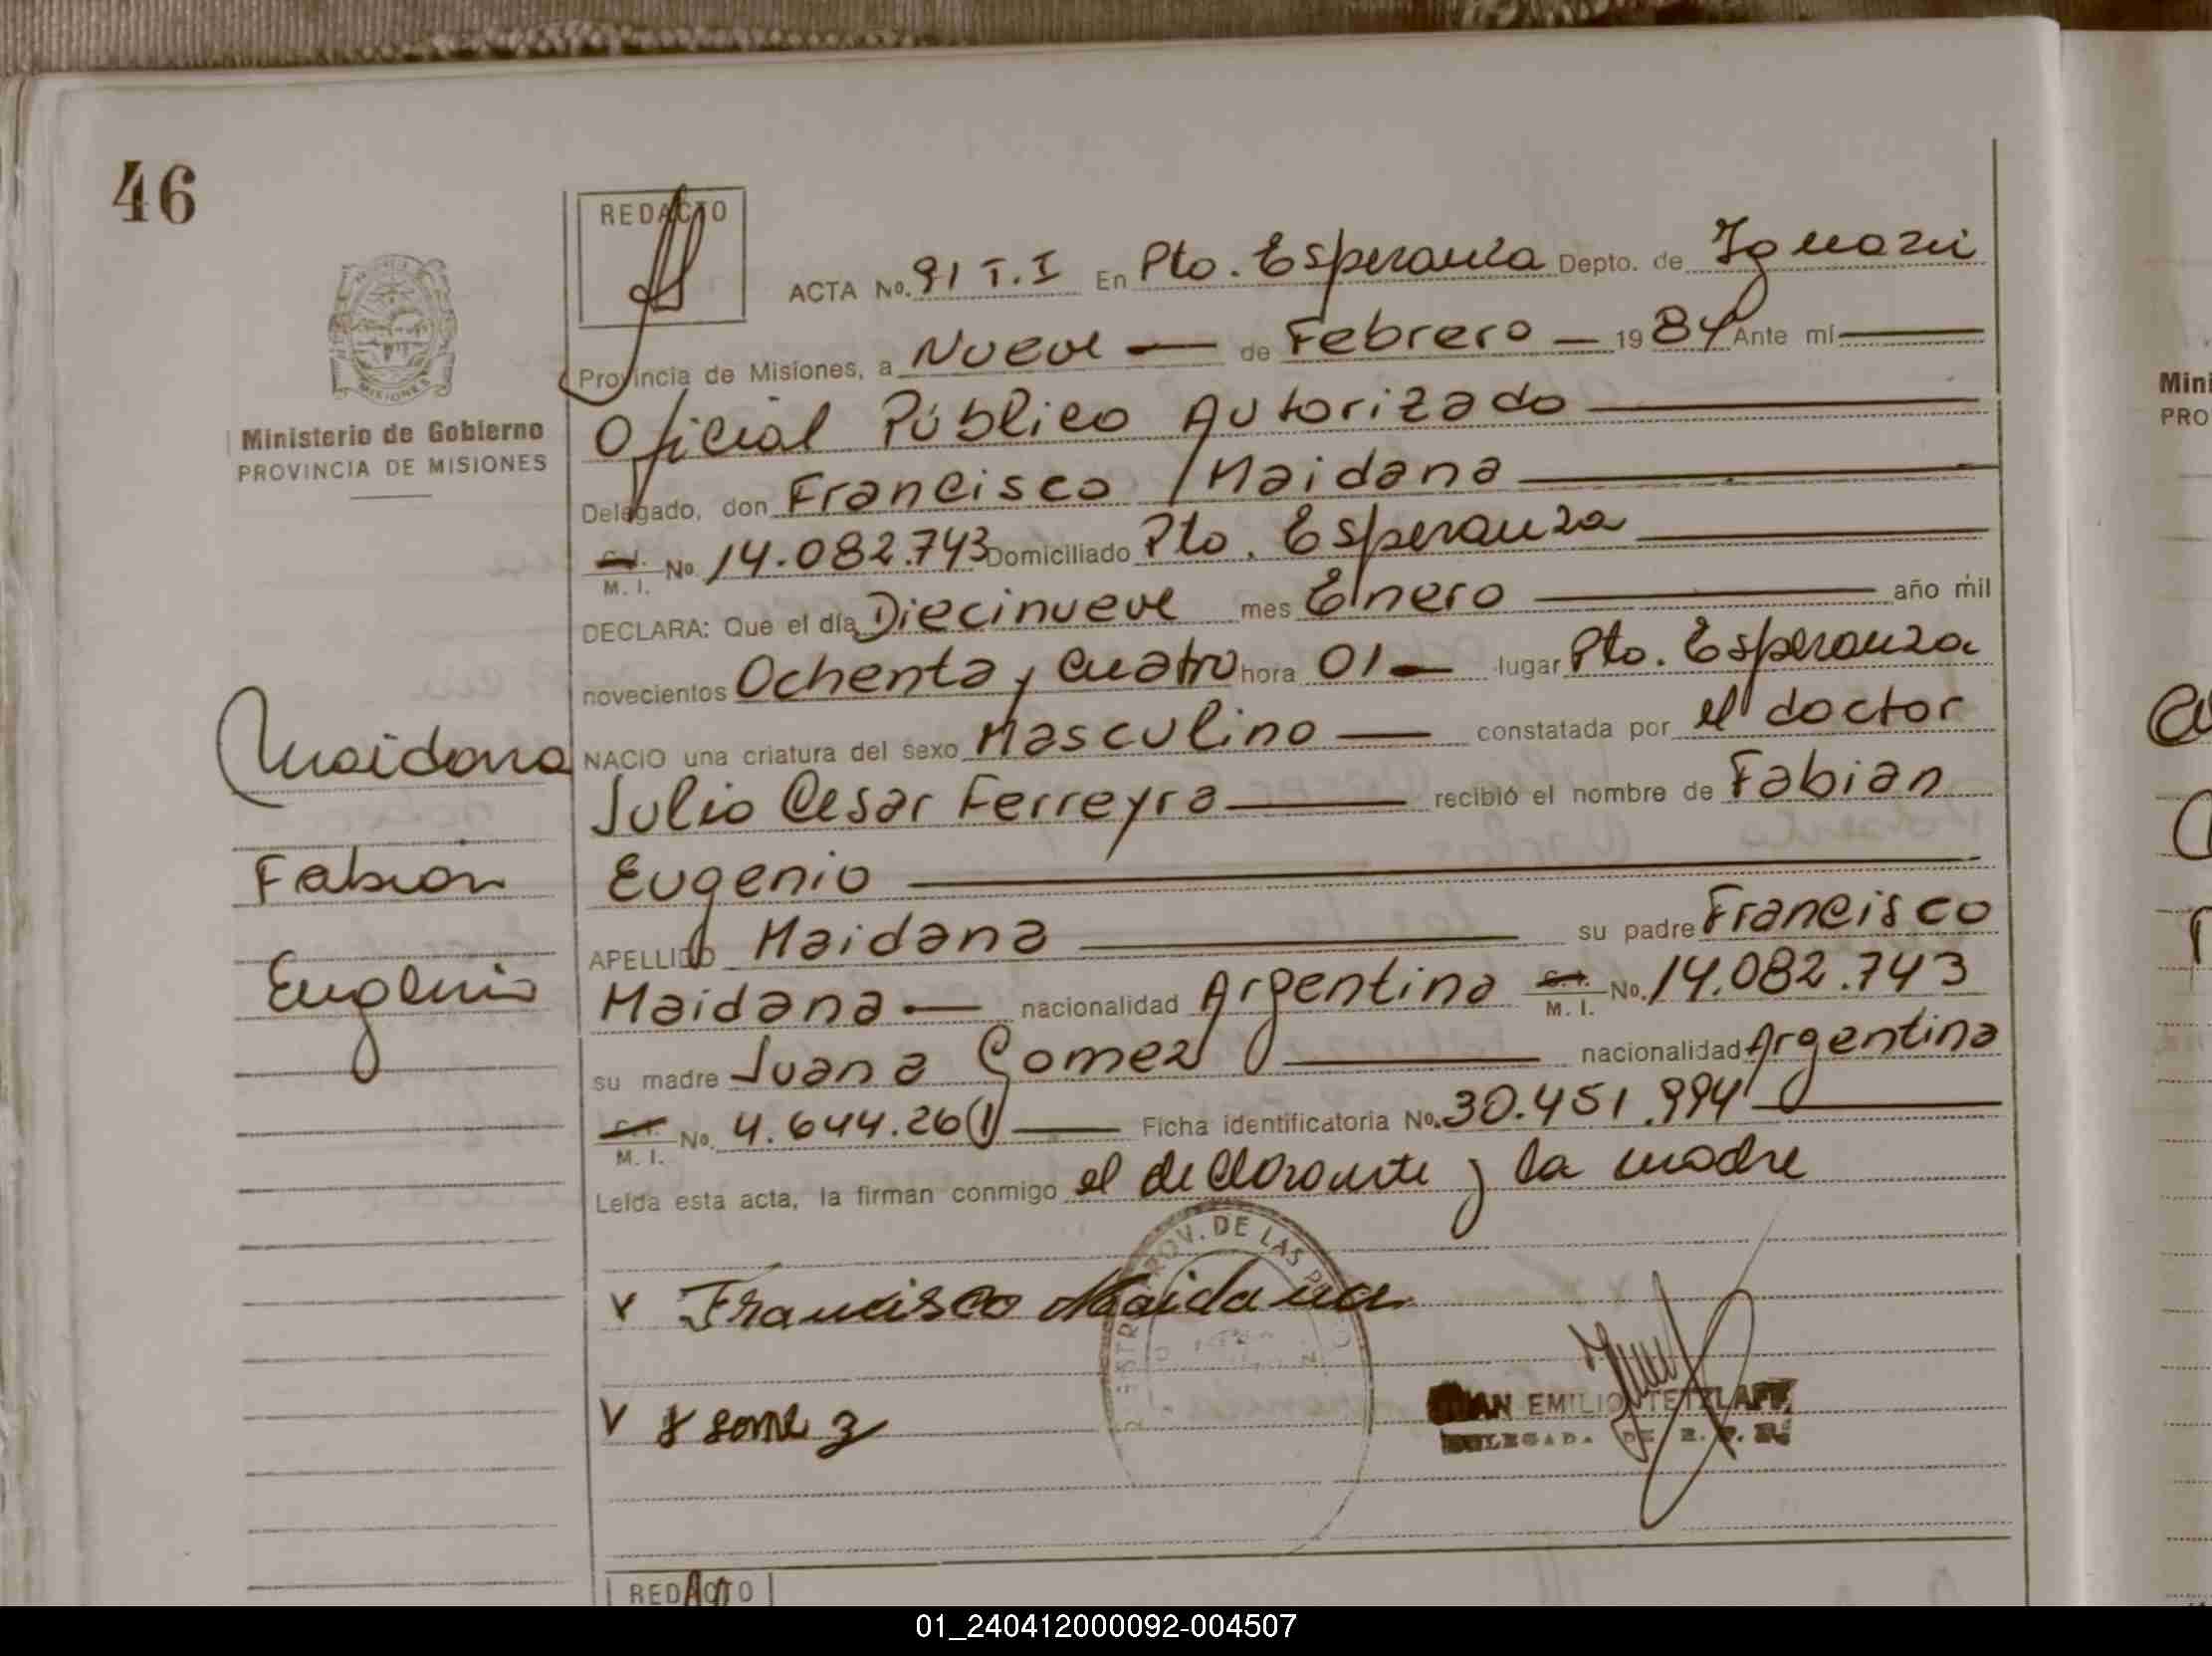 46
REDACTO
ACTA No. 91 T.I En Pto. Esperanza Depto. de Iguazú
Provincia de Misiones, a Nueve — de Febrero — 1984 Ante mí
Oficial Público Autorizado
Delegado, don Francisco Maidana
C.I. M. I. No. 14.082.743 Domiciliado Pto. Esperanza
DECLARA: Que el día Diecinueve mes Enero año mil
novecientos Ochenta y Cuatro hora 01 — lugar Pto. Esperanza
NACIO una criatura del sexo Masculino — constatada por el doctor
Julio Cesar Ferreyra — recibió el nombre de Fabian
Eugenio
APELLIDO Maidana su padre Francisco
Maidana — nacionalidad Argentina C.I. M. I. No. 14.082.743
su madre Juana Gomez nacionalidad Argentina
C.I. M. I. No. 4.644.261 — Ficha identificatoria No. 30.451.994
Leída esta acta, la firman conmigo el declarante y la madre
Ministerio de Gobierno
PROVINCIA DE MISIONES
Maidana
Fabian
Eugenio
PROV. DE LAS
Francisco Maidana
Gomez
JUAN EMILIO TETZLAFF
REDACTO
Mini
PRO
01_240412000092-004507